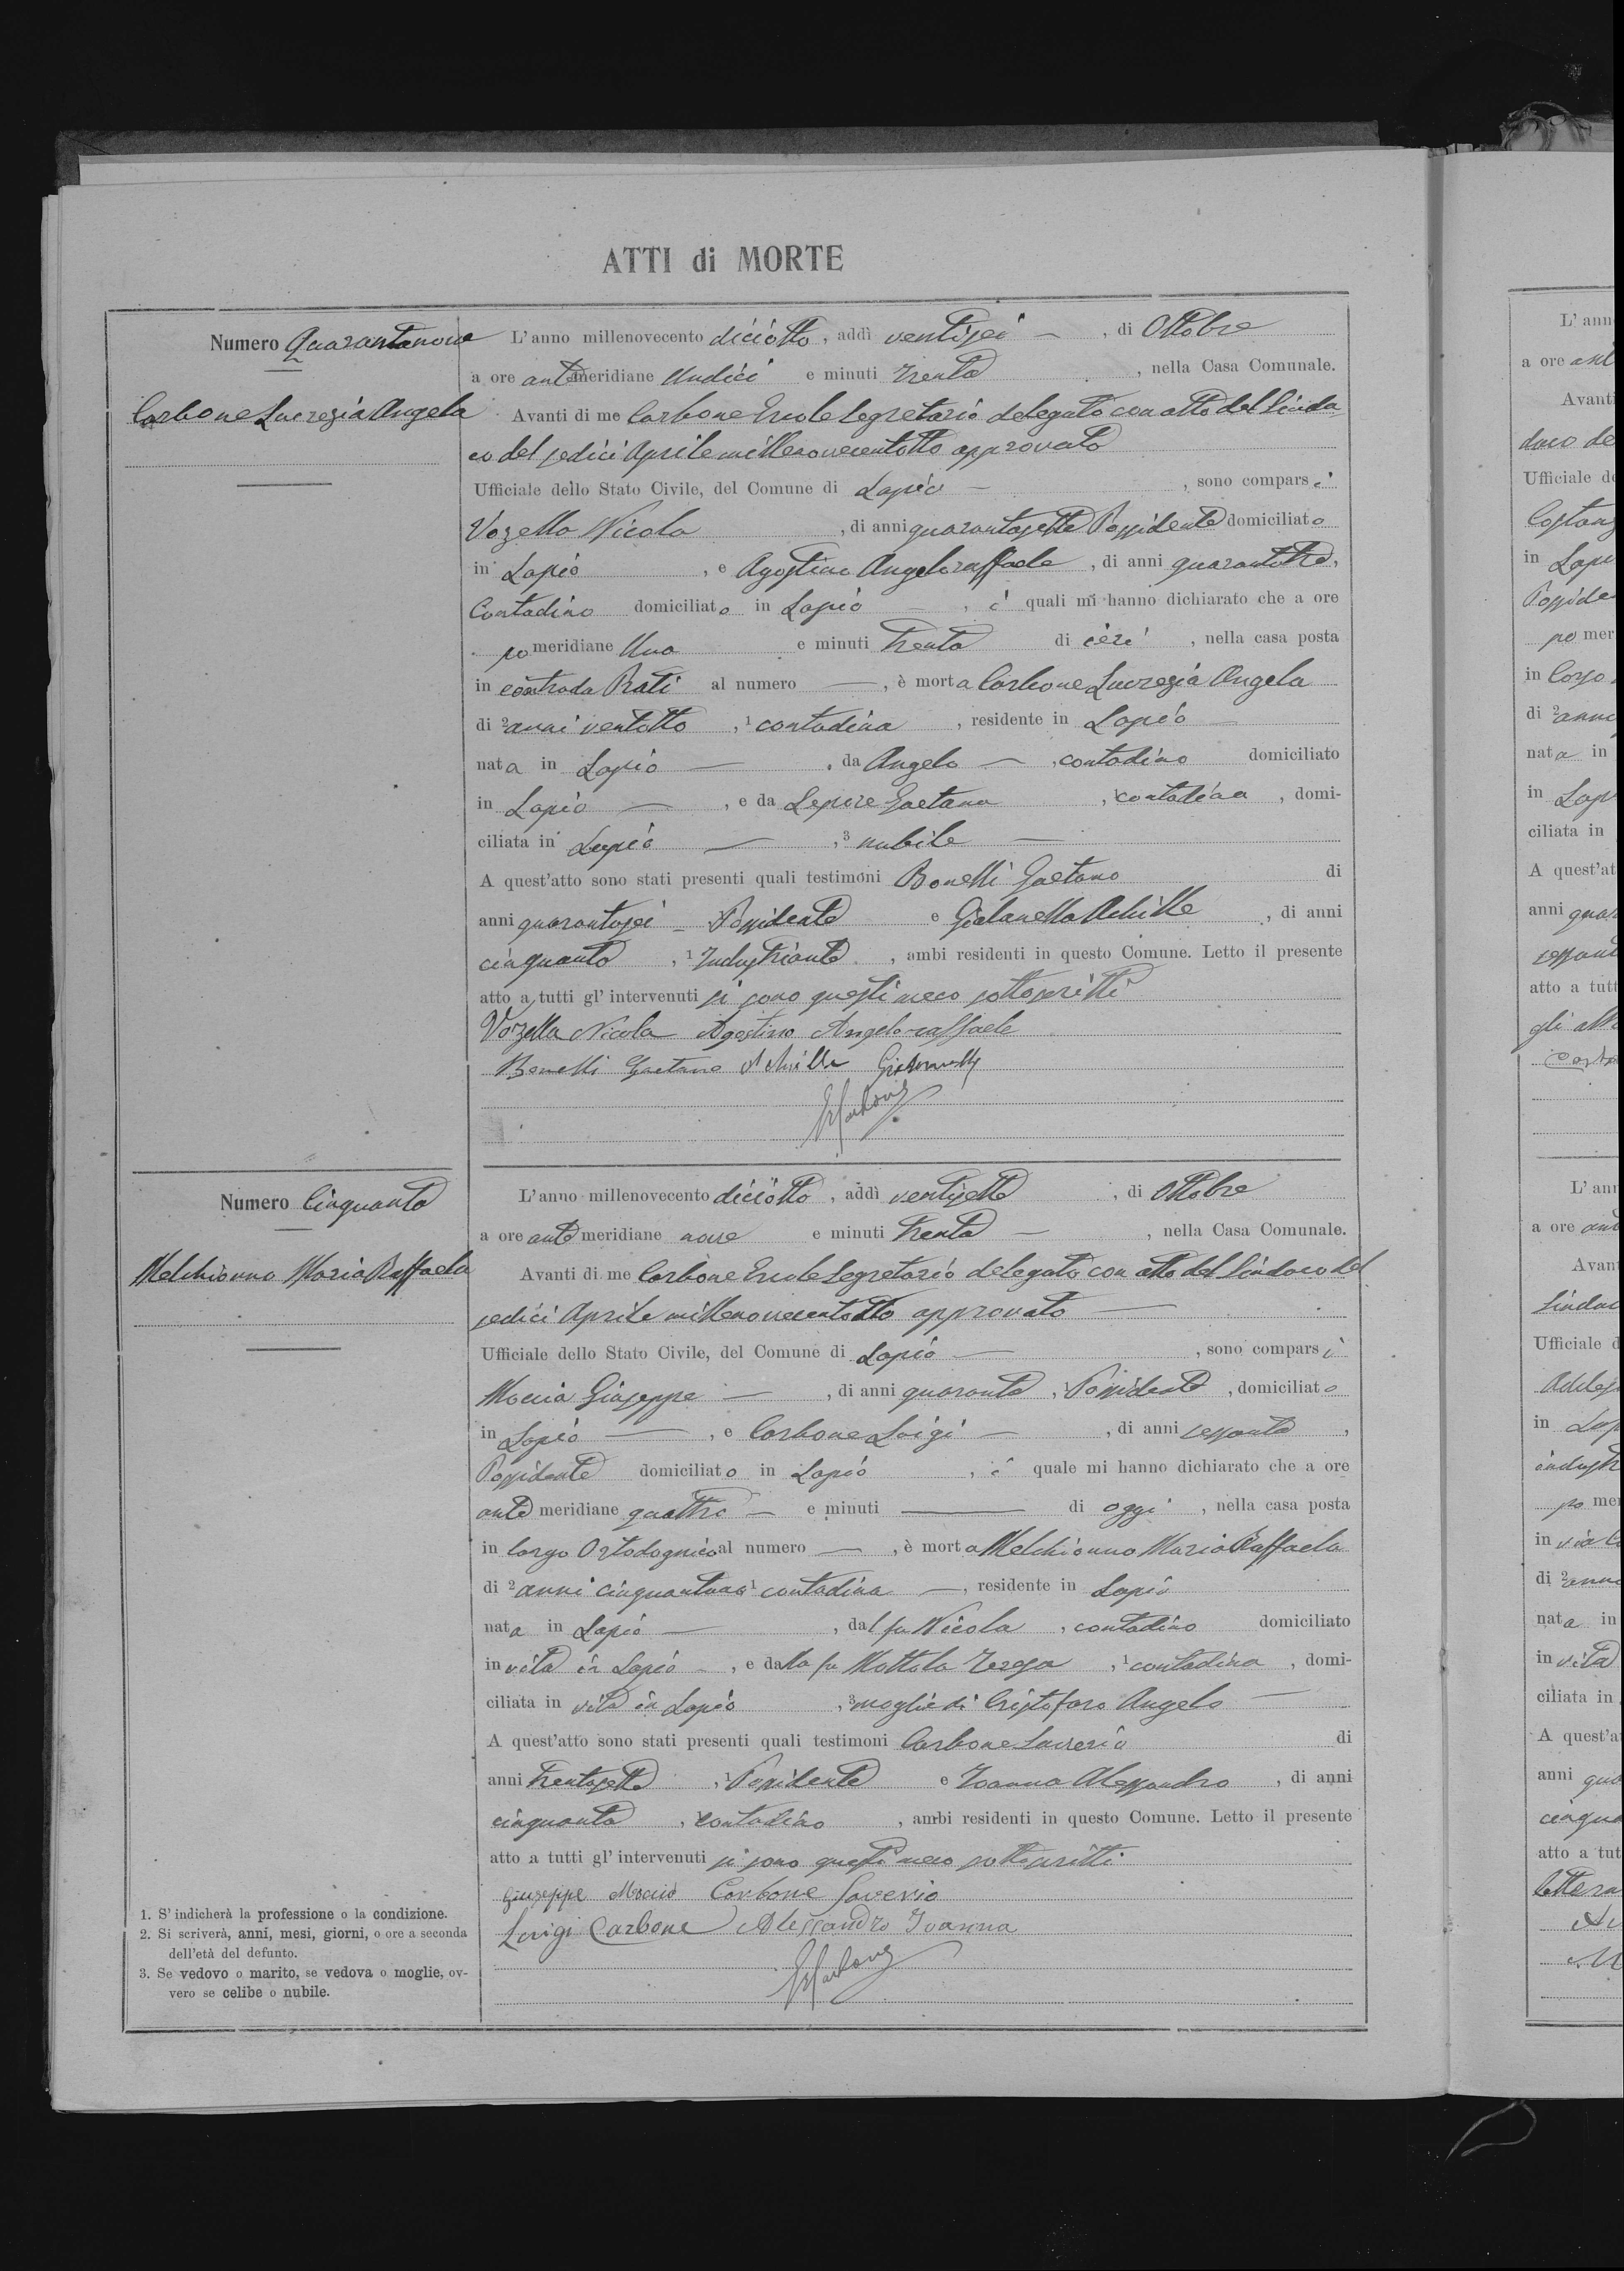 ATTI di MORTE
Numero Quarantanove
Carbone Lucrezia Angela
L'anno millenovecento diciotto, addì ventisei —, di Ottobre
a ore antemeridiane Undici e minuti trenta, nella Casa Comunale.
Avanti di me Carbone Ercole Segretario delegato con atto del Sinda
co del sedici Aprile millenovecentotto approvato
Ufficiale dello Stato Civile, del Comune di Lapio —, sono comparsi
Vozella Nicola, di anni quarantasette Possidente domiciliato
in Lapio, e Agostino Angeloraffaele, di anni quarantotto,
Contadino domiciliato in Lapio, i quali mi hanno dichiarato che a ore
pomeridiane Una e minuti trenta di ieri, nella casa posta
in contrada Prati al numero —, è morta Carbone Lucrezia Angela
di ² anni ventotto, ¹ contadina, residente in Lapio —
nata in Lapio —, da Angelo —, contadino domiciliato
in Lapio —, e da Lepore Gaetana, contadina, domi-
ciliata in Lapio —, ³ nubile —
A quest'atto sono stati presenti quali testimoni Bonelli Gaetano di
anni quarantasei — Possidente e Gielanella Achille, di anni
cinquanta, ¹ Industriante, ambi residenti in questo Comune. Letto il presente
atto a tutti gl' intervenuti si sono questi meco sottoscritti
Vozella Nicola Agostino Angelo raffaele
Bonelli Gaetano Achille
Numero Cinquanta
Melchionno Maria Raffaela
L'anno millenovecento diciotto, addì ventisette, di Ottobre
a ore antemeridiane nove e minuti trenta —, nella Casa Comunale.
Avanti di me Carbone Ercole Segretario delegato con atto del Sindaco del
sedici Aprile millenovecentotto approvato —
Ufficiale dello Stato Civile, del Comune di Lapio —, sono comparsi
Moccia Giuseppe —, di anni quaranta, ¹ Possidente, domiciliato
in Lapio —, e Carbone Luigi —, di anni sessanta,
Possidente domiciliato in Lapio, i quale mi hanno dichiarato che a ore
antemeridiane quattro — e minuti — di oggi, nella casa posta
in largo al numero —, è morta Melchionno Maria Raffaela
di ² anni cinquantuno ¹ contadina —, residente in Lapio
nata in Lapio —, dal fu Nicola, contadino domiciliato
in vita in Lapio —, e dalla fu Mottola Teresa, ¹ contadina, domi-
ciliata in vita in Lapio, ³ moglie di Cristofaro Angelo —
A quest'atto sono stati presenti quali testimoni Carbone Saverio di
anni trentasette, ¹ Possidente e Ioanna Alessandro, di anni
cinquanta, contadino, ambi residenti in questo Comune. Letto il presente
atto a tutti gl' intervenuti si sono questi meco sottoscritti
Giuseppe Moccia Carbone Saverio
Luigi Carbone Alessandro Ioanna
1. S' indicherà la professione o la condizione.
2. Si scriverà, anni, mesi, giorni, o ore a seconda
dell'età del defunto.
3. Se vedovo o marito, se vedova o moglie, ov-
vero se celibe o nubile.
L' ann
a ore ant
Avanti
Ufficiale de
in Lapi
po mer
in Corso
di ² anni
nata in
in Lap
ciliata in
A quest'at
anni quar
atto a tutt
gli
L' ann
a ore ant
Avant
Sindac
Ufficiale d
in Lap
po mer
in via
di ² anni
nata in
in vita
ciliata in
A quest'a
anni qua
cinqua
atto a tut